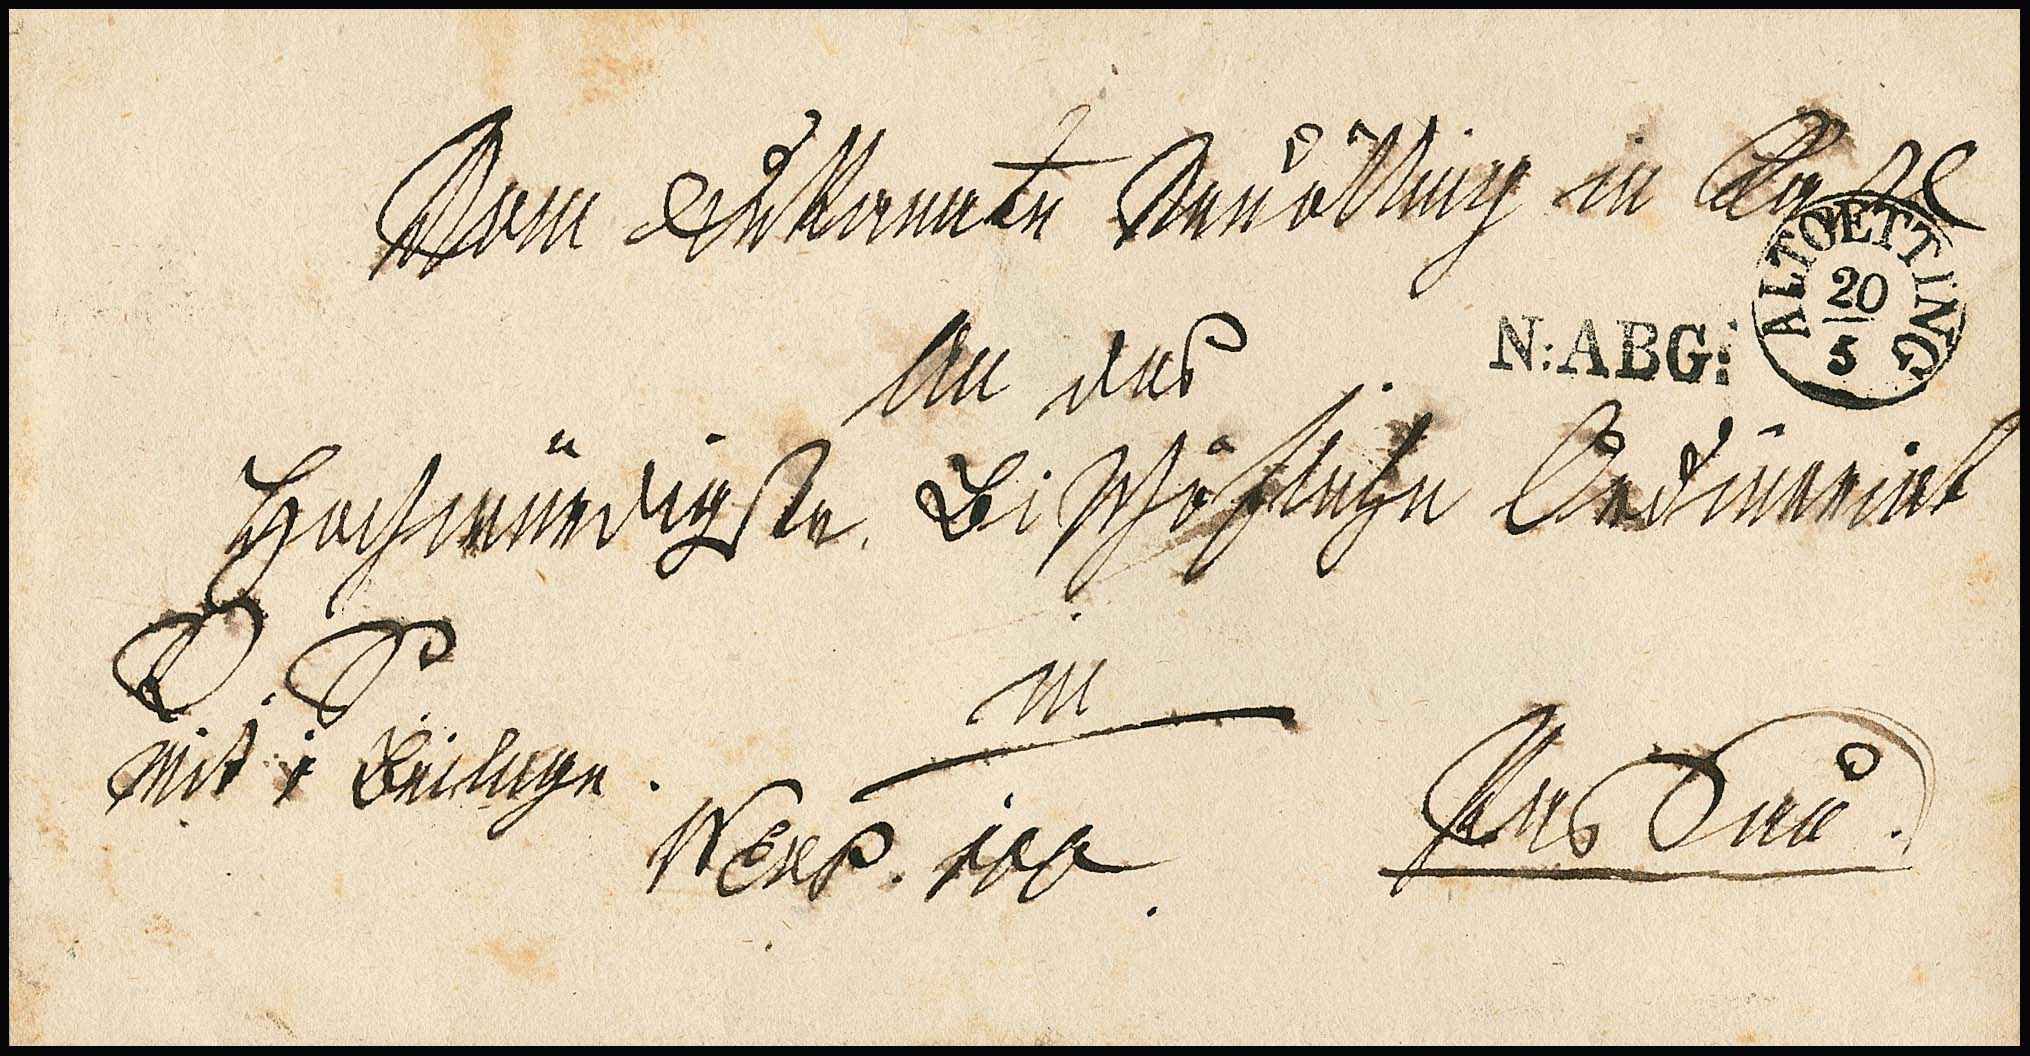 Vom Dekanate Neuötting in Kastl
ALTOETTING
20
5
N:ABG:
An das
Hochwürdigste Bischöfliche Ordinariat
D. S.
in
mit 1 Beilage.
N Exp. 100
Passau.